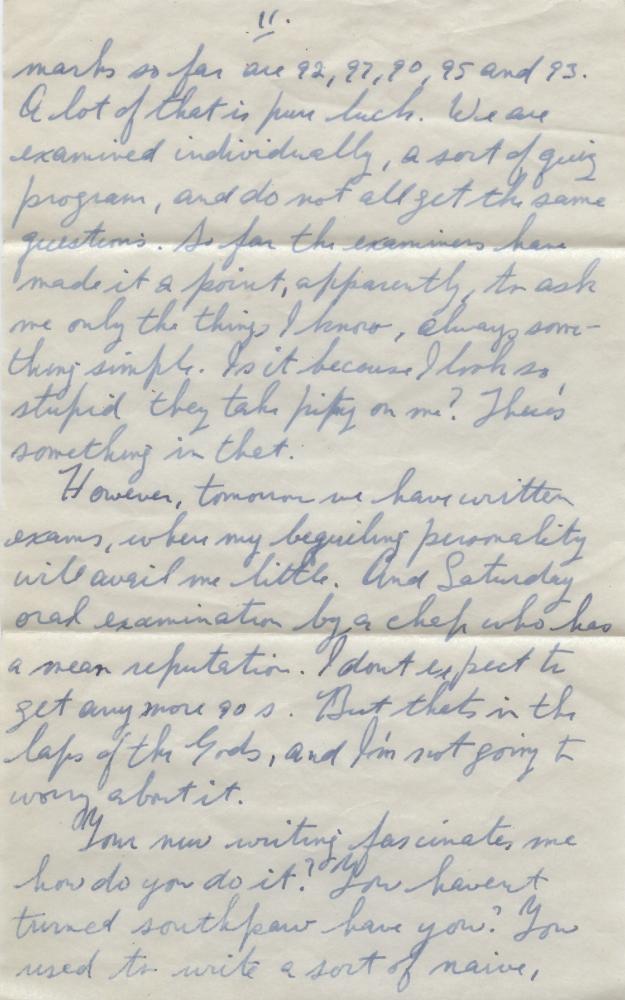 11.
marks so far are 92, 97, 90, 95 and 93.
A lot of that is pure luck. We are
examined individually, a sort of quiz
program, and do not all get the same
questions. So far the examiners have
made it a point, apparently, to ask
me only the things I know, always some-
thing simple. Is it because I look so
stupid they take pity on me? There's
something in that.
However, tomorrow we have written
exams, where my beguiling personality
will avail me little. And Saturday
oral examination by a chap who has
a mean reputation. I dont expect to
get any more 90s. But thats in the
laps of the Gods, and I'm not going to
worry about it.
Your new writing fascinates me
how do you do it? You havent
turned southpaw have you? You
used to write a sort of naive,